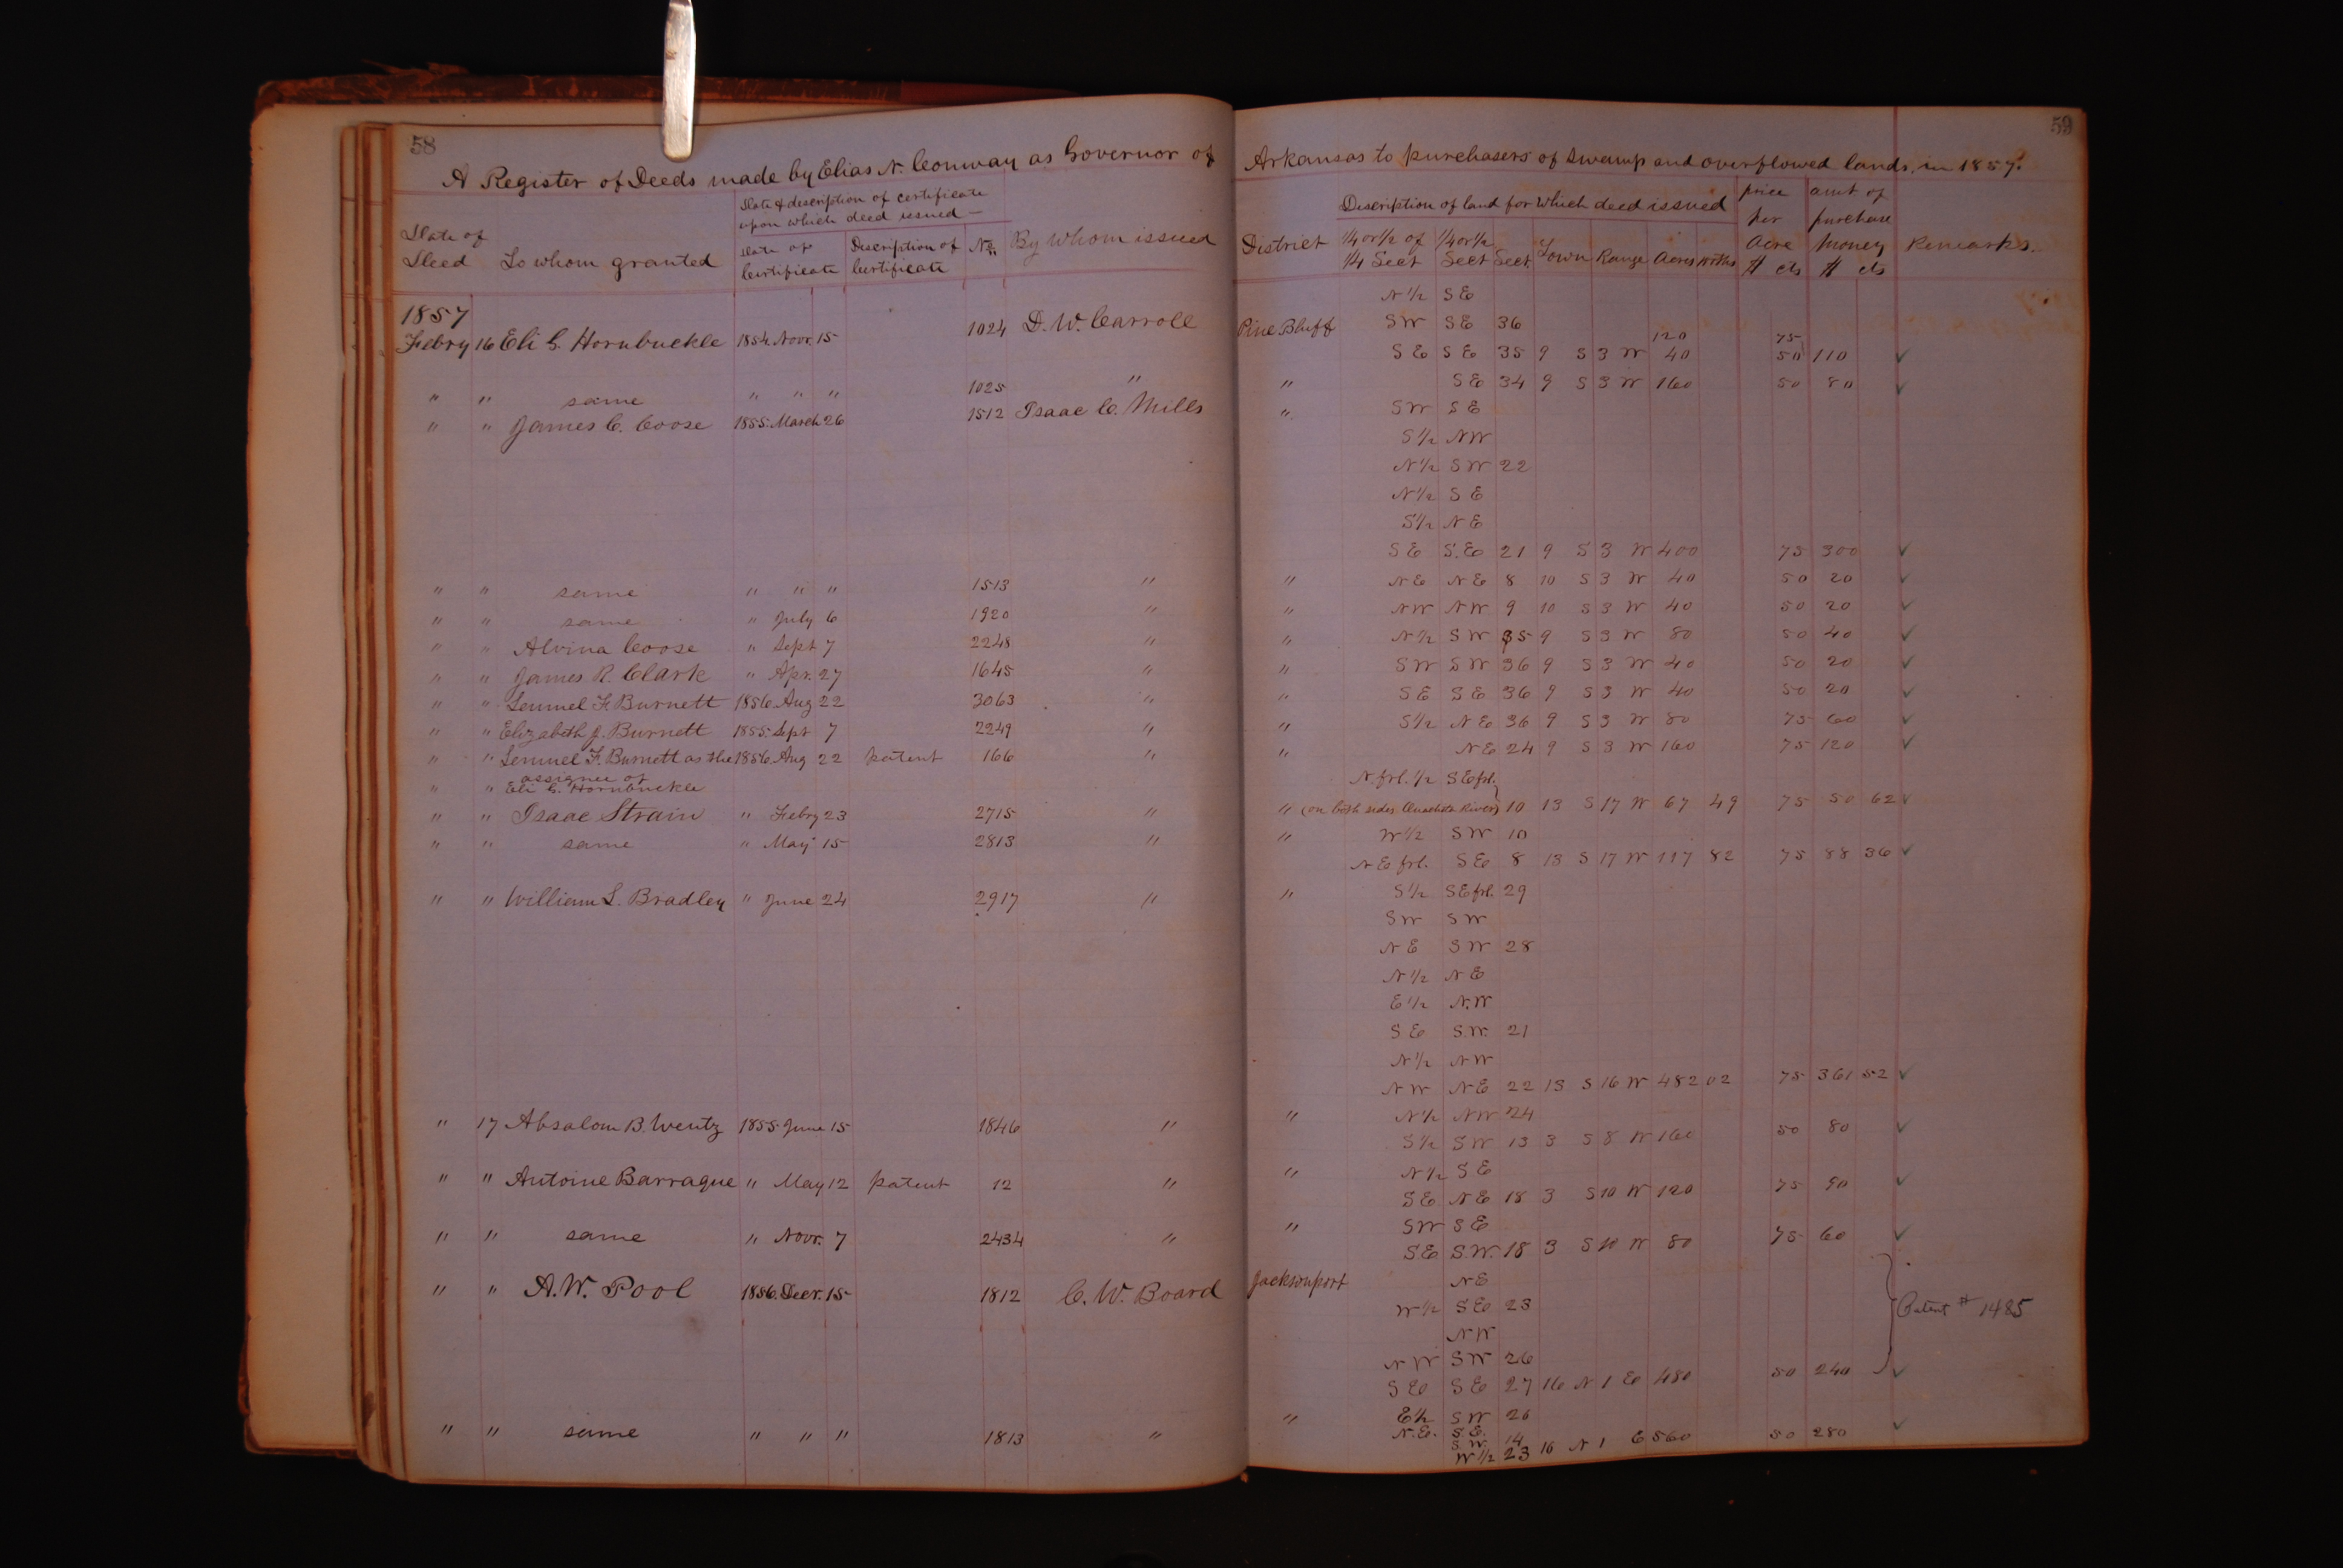 58
A Register of Deeds made by Elias N. Conway as Governor of
Date of Deed
To whom granted
Date & description of certificate upon which deed issued —
Date of Certificate
Description of Certificate
No.
By whom issued
1857
Febry 16 Eli G. Hornbuckle 1854 Novr. 15 1024 D. W. Carroll
" " same " " " 1025 "
" " James C. Coose 1855 March 26 1512 Isaac C. Mills
" " same " " " 1513 "
" " same " July 6 1920 "
" " Alvina Coose " Sept 7 2248 "
" " James R. Clark " Apr. 27 1645 "
" " Lemuel F. Burnett 1856 Aug 22 3063 "
" " Elizabeth J. Burnett 1855 Sept 7 2249 "
" " Lemuel F. Burnett as the 1856 Aug 22 patent 166 "
assignee of
" " Eli G. Hornbuckle
" " Isaac Strain " Febry 23 2715 "
" " same " May 15 2813 "
" " William L. Bradley " June 24 2917 "
" 17 Absalom B. Wentz 1855 June 15 1846 "
" " Antoine Barraque " May 12 patent 12 "
" " same " Novr. 7 2434 "
" " A. W. Pool 1856 Decr. 15 1812 C. W. Board
" " same " " " 1813 "
59
Arkansas to purchasers of Swamp and overflowed lands, in 1857.
District
Description of land for which deed issued
1/4 or 1/2 of 1/4 Sect
1/4 or 1/2 Sect
Sect.
Town
Range
Acres
100ths
price per Acre $ cts
amt of purchase money $ cts
Remarks.
N 1/2 SE
Pine Bluff SW SE 36 120 75
SE SE 35 9 S 3 W 40 50 110 ✓
" SE 34 9 S 3 W 160 50 80 ✓
" SW SE
S 1/2 NW
N 1/2 SW 22
N 1/2 SE
S 1/2 NE
SE S.E 21 9 S 3 W 400 75 300 ✓
" NE NE 8 10 S 3 W 40 50 20 ✓
" NW NW 9 10 S 3 W 40 50 20 ✓
" N 1/2 SW 35 9 S 3 W 80 50 40 ✓
" SW SW 36 9 S 3 W 40 50 20 ✓
" SE SE 36 9 S 3 W 40 50 20 ✓
" S 1/2 NE 36 9 S 3 W 80 75 60 ✓
" NE 24 9 S 3 W 160 75 120 ✓
N. frl. 1/2 SE frl.
" (on both sides Ouachita River) 10 13 S 17 W 67 49 75 50 62 ✓
" W 1/2 SW 10
NE frl. SE 8 13 S 17 W 117 82 75 88 36 ✓
" S 1/2 SE frl. 29
SW SW
NE SW 28
N 1/2 NE
E 1/2 N.W
SE S.W. 21
N 1/2 NW
NW NE 22 13 S 16 W 482 02 75 361 52 ✓
" N 1/2 NW 24
S 1/2 SW 13 3 S 8 W 160 50 80 ✓
" N 1/2 SE
SE NE 18 3 S 10 W 120 75 90 ✓
" SW SE
SE S.W. 18 3 S 10 W 80 75 60 ✓
Jacksonport NE
W 1/2 SE 23
Patent # 1485
NW
NW SW 26
SE SE 27 16 N 1 E 480 50 240 ✓
" E 1/2 SW 26
N.E. S.E.
S W 14
W 1/2 23 16 N 1 E 560 50 280 ✓